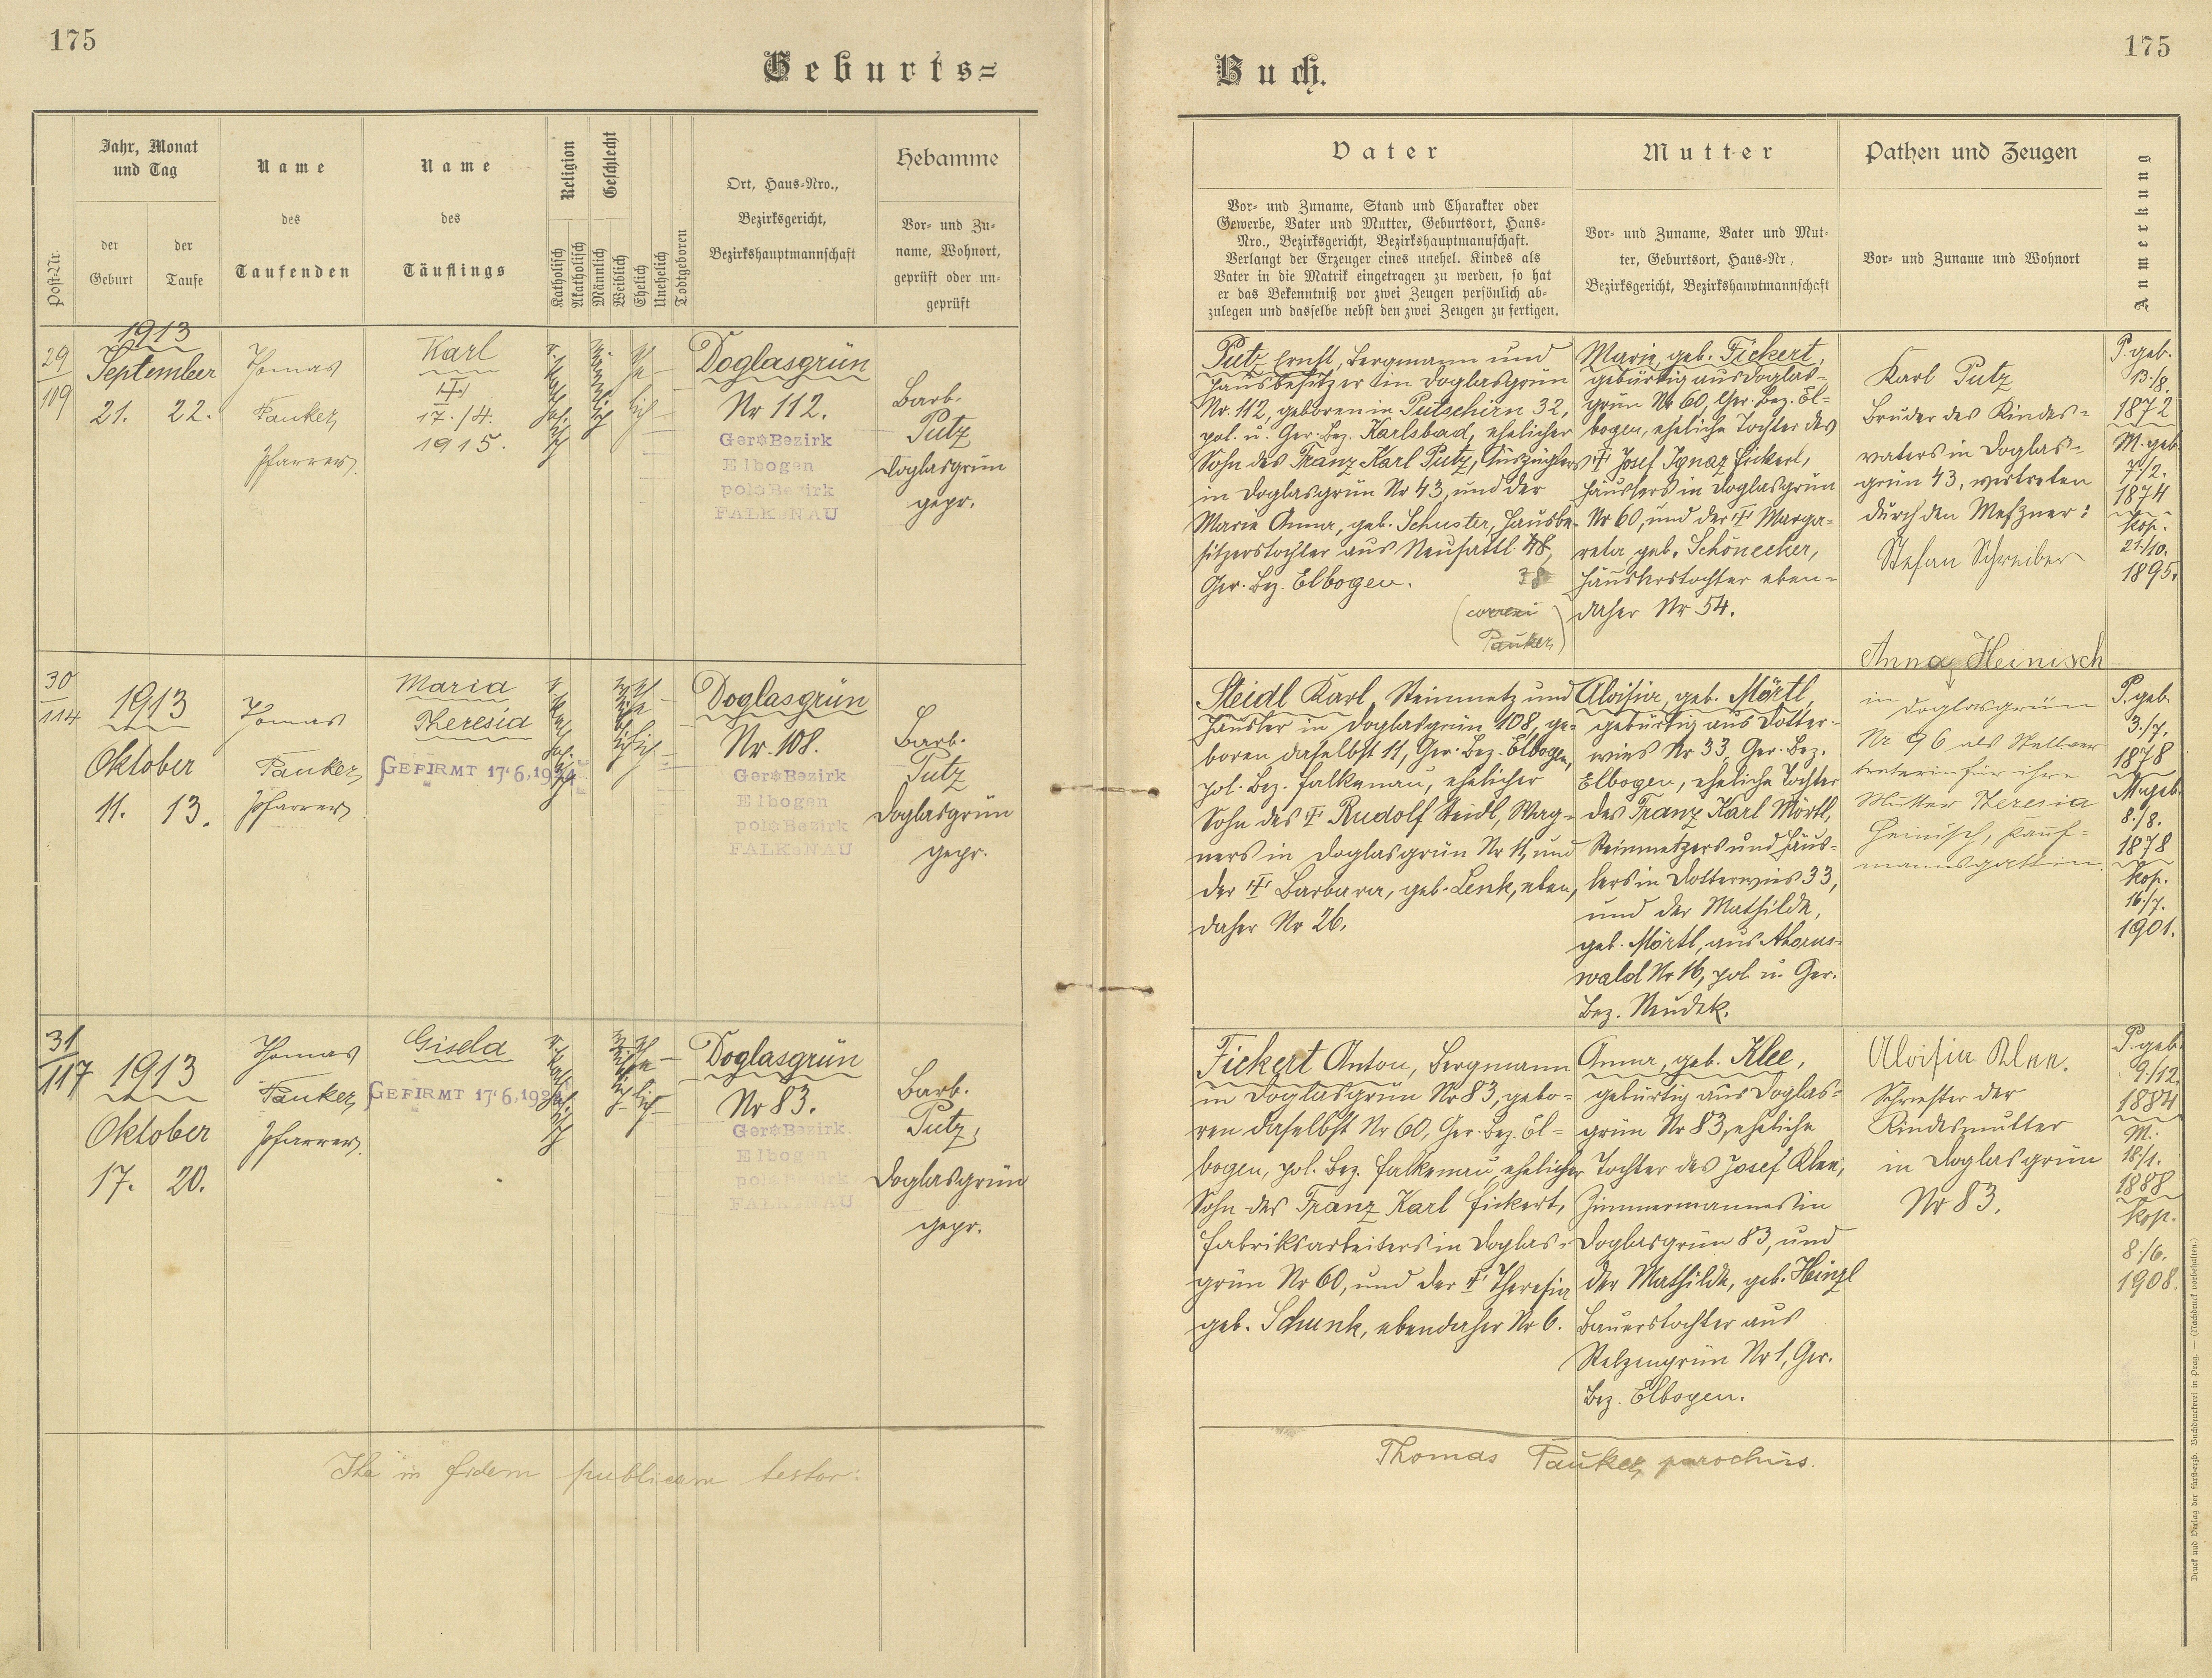 175
Geburts=
Jahr, Monat
und Tag
Name
des
Taufenden
Name
des
Täuflings
Religion
Geschlecht
Ort, Haus=Nro.,
Bezirksgericht,
Bezirkshauptmannschaft
Hebamme
Vor= und Zu=
name, Wohnort,
geprüft oder un=
geprüft
Post=Nr.
der
Geburt
der
Taufe
Katholisch
Akatholisch
Männlich
Weiblich
Ehelich
Unehelich
Todtgeboren
29
119
1913
September
21. 22.
Thomas
Pauker,
Pfarrer.
Karl
17./4.
1915.
Doglasgrün
Nr 112.
Ger. Bezirk
Elbogen
pol. Bezirk
FALKENAU
Barb.
Putz
Doglasgrün
gepr.
30
114
1913
Oktober
11. 13.
Thomas
Pauker,
Pfarrer
Maria
Theresia
GEFIRMT 17.6.1924
Doglasgrün
Nr. 108.
Ger. Bezirk
Elbogen
pol. Bezirk
FALKENAU
Barb.
Putz
Doglasgrün
gepr.
31
117
1913
Oktober
17. 20.
Thomas
Pauker,
Pfarrer.
Gisela
GEFIRMT 17.6.192
Doglasgrün
Nr 83.
Ger. Bezirk
Elbogen
pol. Bezirk
FALKENAU
Barb.
Putz,
Doglasgrün
gepr.
Ita in fidem publicam testor:
175
Buch.
Vater
Vor= und Zuname, Stand und Charakter oder
Gewerbe, Vater und Mutter, Geburtsort, Haus=
Nro., Bezirksgericht, Bezirkshauptmannschaft.
Verlangt der Erzeuger eines unehel. Kindes als
Vater in die Matrik eingetragen zu werden, so hat
er das Bekenntniß vor zwei Zeugen persönlich ab=
zulegen und dasselbe nebst den zwei Zeugen zu fertigen.
Mutter
Vor= und Zuname, Vater und Mut=
ter, Geburtsort, Haus=Nr.,
Bezirksgericht, Bezirkshauptmannschaft
Pathen und Zeugen
Vor= und Zuname und Wohnort
Anmerkung
Putz Ernst, Bergmann und
Hausbesitzer in Doglasgrün
Nr. 112, geboren in Putschirn 32,
pol. u. Ger. Bez. Karlsbad, ehelicher
Sohn des Franz Karl Putz, Auszüglers
in Doglasgrün Nr 43, und der
Marie Anna, geb. Schuster, Hausbe=
sitzerstochter aus Neusattl 48,
38
Ger. Bez. Elbogen.
(correxi
Pauker)
Marie, geb. Fickert,
gebürtig aus Doglas=
grün Nr 60, Ger. Bez. El=
bogen, eheliche Tochter des
Josef Ignaz Fickert,
Häuslers in Doglasgrün
Nr 60, und der Marga=
reta geb. Schönecker,
Häuslerstochter eben=
daher Nr 54.
Karl Putz
Bruder des Kindes=
vaters in Doglas=
grün 43, vertreten
durch den Meßner:
Stefan Schreiber
P. geb.
13./8.
1872
M. geb.
7./2.
1874
Kop.
21./10.
1895.
Steidl Karl, Steinmetz und
Häusler in Doglasgrün 108, ge=
boren daselbst 11, Ger. Bez. Elbogen,
pol. Bez. Falkenau, ehelicher
Sohn des Rudolf Steidl, Wag=
ners in Doglasgrün Nr 11, und
der Barbara, geb. Lenk, eben,
daher Nr 26.
Aloisia, geb. Mörtl,
gebürtig aus Dotter=
wies Nr 33, Ger. Bez.
Elbogen, eheliche Tochter
des Franz Karl Mörtl,
Steinmetzers und Häus=
lers in Dotterwies 33,
und der Mathilde,
geb. Mörtl, aus Ahorns=
wald Nr 16, pol. u. Ger.
Bez. Neudek.
Anna Heinisch
in Doglasgrün
Nr 96 als Stellver
treterin für ihre
Mutter Theresia
Heinisch, Kauf=
mannsgattin.
P. geb.
3./7.
1878
M. geb.
8./8.
1878
Kop.
16./7.
1901.
Fickert Anton, Bergmann
in Doglasgrün Nr 83, gebo=
ren daselbst Nr 60, Ger. Bez. El=
bogen, pol. Bez. Falkenau, ehelicher
Sohn des Franz Karl Fickert,
Fabriksarbeiters in Doglas=
grün Nr 60, und der Theresia
geb. Schunk, ebendaher Nr 6.
Anna, geb. Klee,
gebürtig aus Doglas=
grün Nr 83, eheliche
Tochter des Josef Klee,
Zimmermannes in
Doglasgrün 83, und
der Mathilde, geb. Heinzl
Bauerstochter aus
Stelzengrün Nr 1, Ger.
Bez. Elbogen.
Aloisia Klee.
Schwester der
Kindesmutter
in Doglasgrün
Nr 83.
P. geb.
9./12.
1884
M.
18./1.
1888
Kop.
8./6.
1908.
Thomas Pauker, parochus.
Druck und Verlag der fürst=erzb. Buchdruckerei in Prag. — (Nachdruck vorbehalten.)